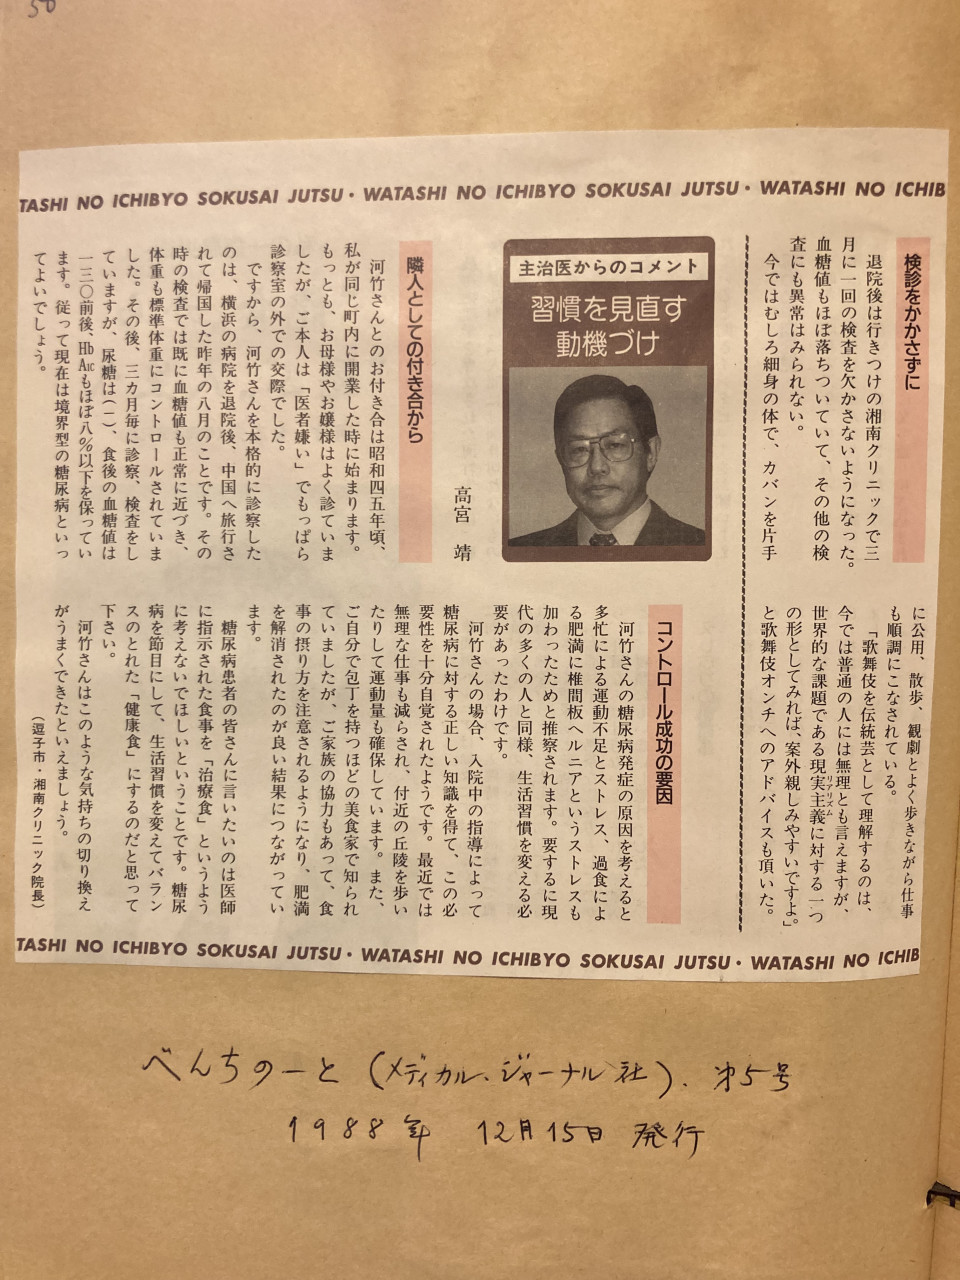 50
TASHI NO ICHIBYO SOKUSAI JUTSU・WATASHI NO ICHIBYO SOKUSAI JUTSU・WATASHI NO ICHIB
検診をかかさずに
退院後は行きつけの湘南クリニックで三
月に一回の検査を欠かさないようになった。
血糖値もほぼ落ちついていて、その他の検
査にも異常はみられない。
今ではむしろ細身の体で、カバンを片手
に公用、散歩、観劇とよく歩きながら仕事
も順調にこなされている。
「歌舞伎を伝統芸として理解するのは、
今では普通の人には無理とも言えますが、
世界的な課題である現実主義に対する一つ
リアリズム
の形としてみれば、案外親しみやすいですよ。」
と歌舞伎オンチへのアドバイスも頂いた。
主治医からのコメント
習慣を見直す
動機づけ
高宮 靖
隣人としての付き合から
河竹さんとのお付き合は昭和四五年頃、
私が同じ町内に開業した時に始まります。
もっとも、お母様やお嬢様はよく診ていま
したが、ご本人は「医者嫌い」でもっぱら
診察室の外での交際でした。
ですから、河竹さんを本格的に診察した
のは、横浜の病院を退院後、中国へ旅行さ
れて帰国した昨年の八月のことです。その
時の検査では既に血糖値も正常に近づき、
体重も標準体重にコントロールされていま
した。その後、三カ月毎に診察、検査をし
ていますが、尿糖は(－)、食後の血糖値は
一三〇前後、Hb A1Cもほぼ八％以下を保ってい
ます。従って現在は境界型の糖尿病といっ
てよいでしょう。
コントロール成功の要因
河竹さんの糖尿病発症の原因を考えると
多忙による運動不足とストレス、過食によ
る肥満に椎間板ヘルニアというストレスも
加わったためと推察されます。要するに現
代の多くの人と同様、生活習慣を変える必
要があったわけです。
河竹さんの場合、入院中の指導によって
糖尿病に対する正しい知識を得て、この必
要性を十分自覚されたようです。最近では
無理な仕事も減らされ、付近の丘陵を歩い
たりして運動量も確保しています。また、
ご自分で包丁を持つほどの美食家で知られ
ていましたが、ご家族の協力もあって、食
事の摂り方を注意されるようになり、肥満
を解消されたのが良い結果につながってい
ます。
糖尿病患者の皆さんに言いたいのは医師
に指示された食事を「治療食」というよう
に考えないでほしいということです。糖尿
病を節目にして、生活習慣を変えてバラン
スのとれた「健康食」にするのだと思って
下さい。
河竹さんはこのような気持ちの切り換え
がうまくできたといえましょう。
（逗子市・湘南クリニック院長）
TASHI NO ICHIBYO SOKUSAI JUTSU・WATASHI NO ICHIBYO SOKUSAI JUTSU・WATASHI NO ICHIB
べんちのーと (メディカル、ジャーナル社)．第5号
1988年 12月15日 発行